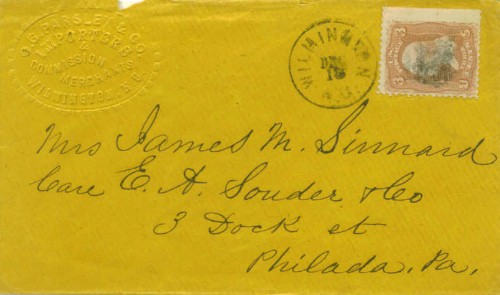 O.G. PARSLEY & CO.
IMPORTERS
&
COMMISSION
MERCHANTS
WILMINGTON, N.C.
WILMINGTON
DEC
18
N.C.
3 3
Mrs James M. Sinnard
Care E. A. Souder & Co
3 Dock st
Philada. Pa.